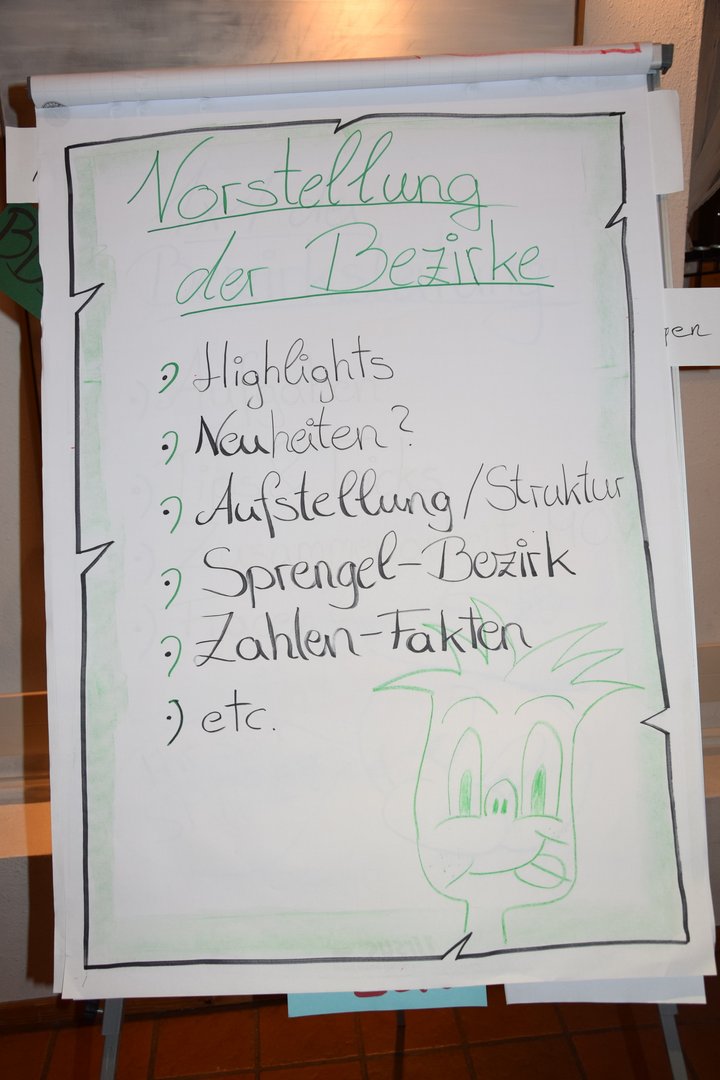 Vorstellung
der Bezirke
Highlights
Neuheiten?
Aufstellung/Struktur
Sprengel-Bezirk
Zahlen-Fakten
etc.